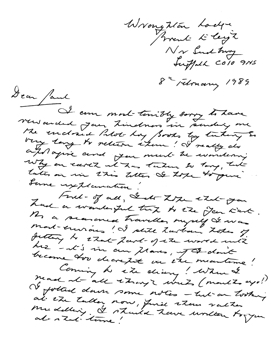 Wroughton Lodge
Brent Eleigh
Nr Sudbury
Suffolk CO10 9NS
8th February 1989
Dear Paul
I am most terribly sorry to have
rewarded your kindness in sending me
the enclosed Pilot Log Books by taking so
very long to return them! I really do
apologise and you must be wondering
why on earth it has taken so long, but
later on in this letter I hope to give
some explanation!
First of all, I do hope that you
had a wonderful trip to the Far East.
As a seasoned traveller myself I was
most envious! I still harbour hopes of
getting to that part of the world with
his - it's in our plans, if I don't
become too decrepit in the meantime!
Coming to the diary! When I
read it all through weeks (months ago?)
I jotted down some notes - but on looking
at the letter now, find them rather
muddling. I should have written to you
at that time!